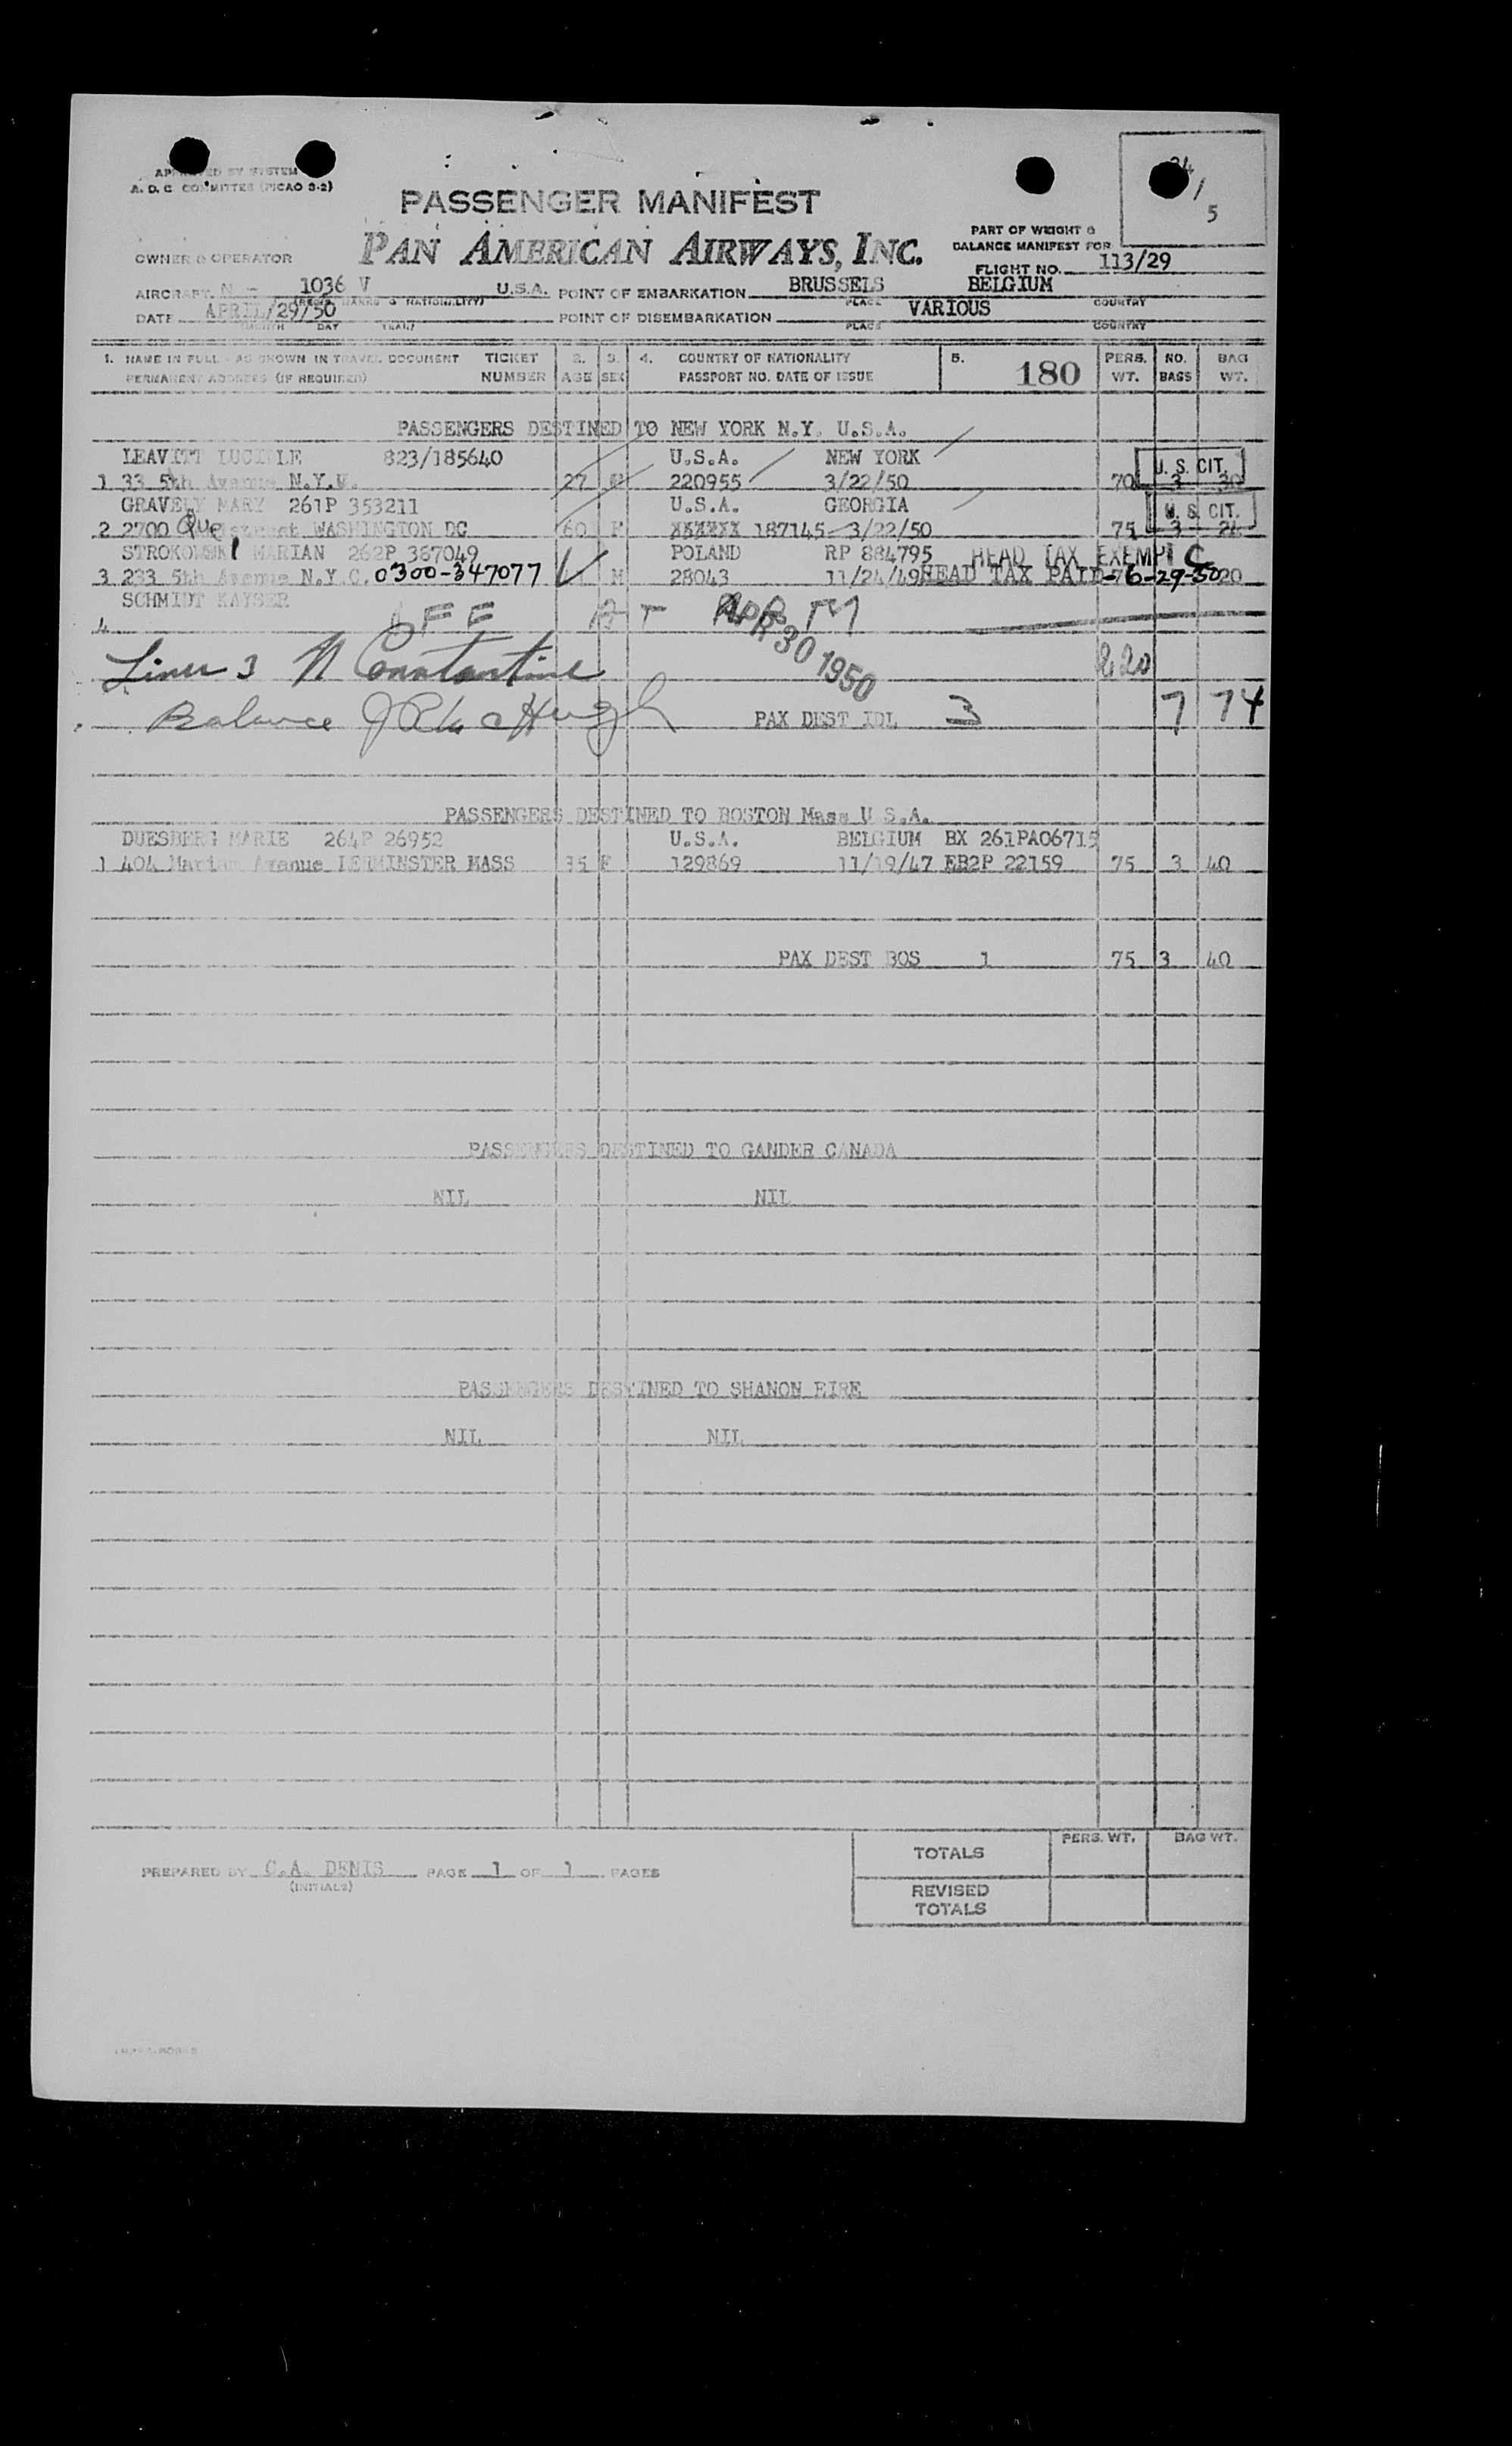 APPROVED BY SYSTEM
A. D. C. COMMITTEE (PICAO 3-2)
/
5
PASSENGER MANIFEST
PAN AMERICAN AIRWAYS, INC.
OWNER & OPERATOR
PART OF WEIGHT &
BALANCE MANIFEST FOR
FLIGHT NO. 113/29
AIRCRAFT N - 1036 V U.S.A. POINT OF EMBARKATION BRUSSELS BELGIUM
(REG. MARKS & NATIONALITY) PLACE COUNTRY
DATE APRIL/29/50 POINT OF DISEMBARKATION VARIOUS
MONTH DAY YEAR PLACE COUNTRY
1. NAME IN FULL - AS SHOWN IN TRAVEL DOCUMENT TICKET 2. 3. 4. COUNTRY OF NATIONALITY 5. PERS. NO. BAG
PERMANENT ADDRESS (IF REQUIRED) NUMBER AGE SEX PASSPORT NO. DATE OF ISSUE 180 WT. BAGS WT.
PASSENGERS DESTINED TO NEW YORK N.Y. U.S.A.
LEAVITT LUCILLE 823/185640 U.S.A. NEW YORK U. S. CIT.
1 33 5th Avenue N.Y. 27 F 220955 3/22/50 70 3 30
GRAVELY MARY 261P 353211 U.S.A. GEORGIA U. S. CIT.
2 2700 Que street WASHINGTON DC 60 F XXXXXX 187145 3/22/50 75 3 24
STROKOWSKI MARIAN 262P 387049 POLAND RP 884795 HEAD TAX EXEMPT C
3 233 5th Avenue N.Y.C. 0300-347077 M 28043 11/24/49 HEAD TAX PAID -6-29-50 20
SCHMIDT KAYSER
4
APR 30 1950
Lines 3 N Constantine 220
Balance J R McHugh PAX DEST IDL 3 7 74
PASSENGERS DESTINED TO BOSTON Mass U S.A.
DUESBERG MARIE 264P 26952 U.S.A. BELGIUM BX 261PA06715
1 404 Avenue LEOMINSTER MASS 35 F 129869 11/19/47 EB2P 22159 75 3 40
PAX DEST BOS 1 75 3 40
PASSENGERS DESTINED TO GANDER CANADA
NIL NIL
PASSENGERS DESTINED TO SHANON EIRE
NIL NIL
TOTALS PERS. WT. BAG WT.
PREPARED BY C.A. DENIS PAGE 1 OF 1 PAGES
(INITIALS)
REVISED
TOTALS